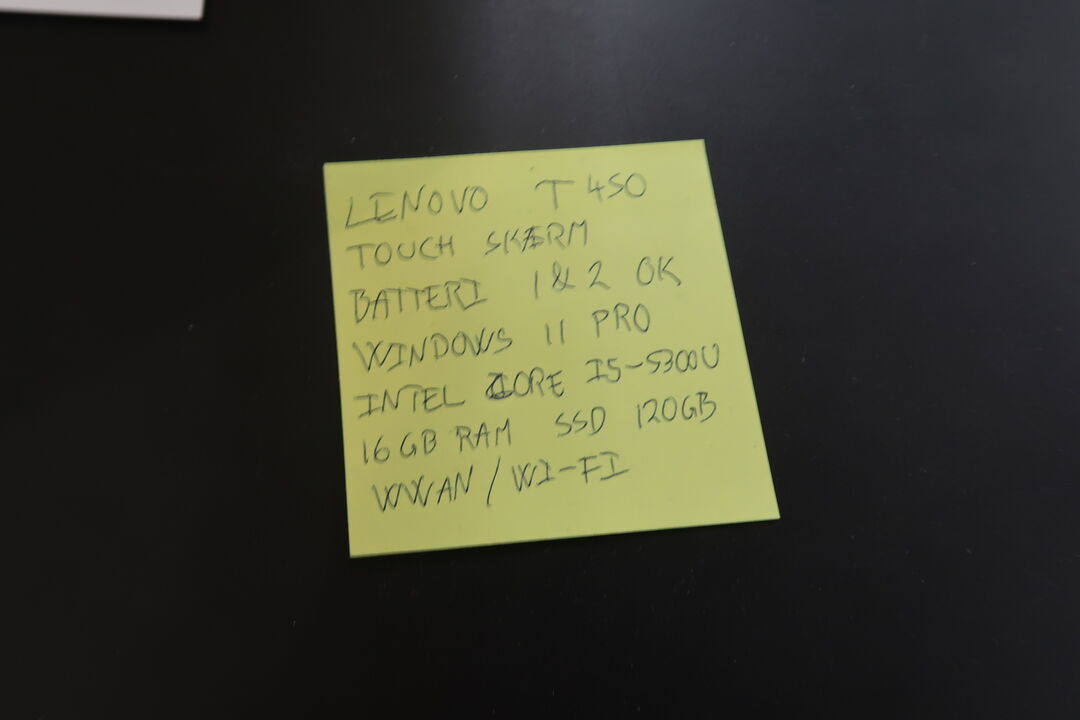 LENOVO T450
TOUCH SKÆRM
BATTERI 1 & 2 OK
WINDOWS 11 PRO
INTEL CORE I5-5300U
16 GB RAM SSD 120GB
WWAN / WI-FI